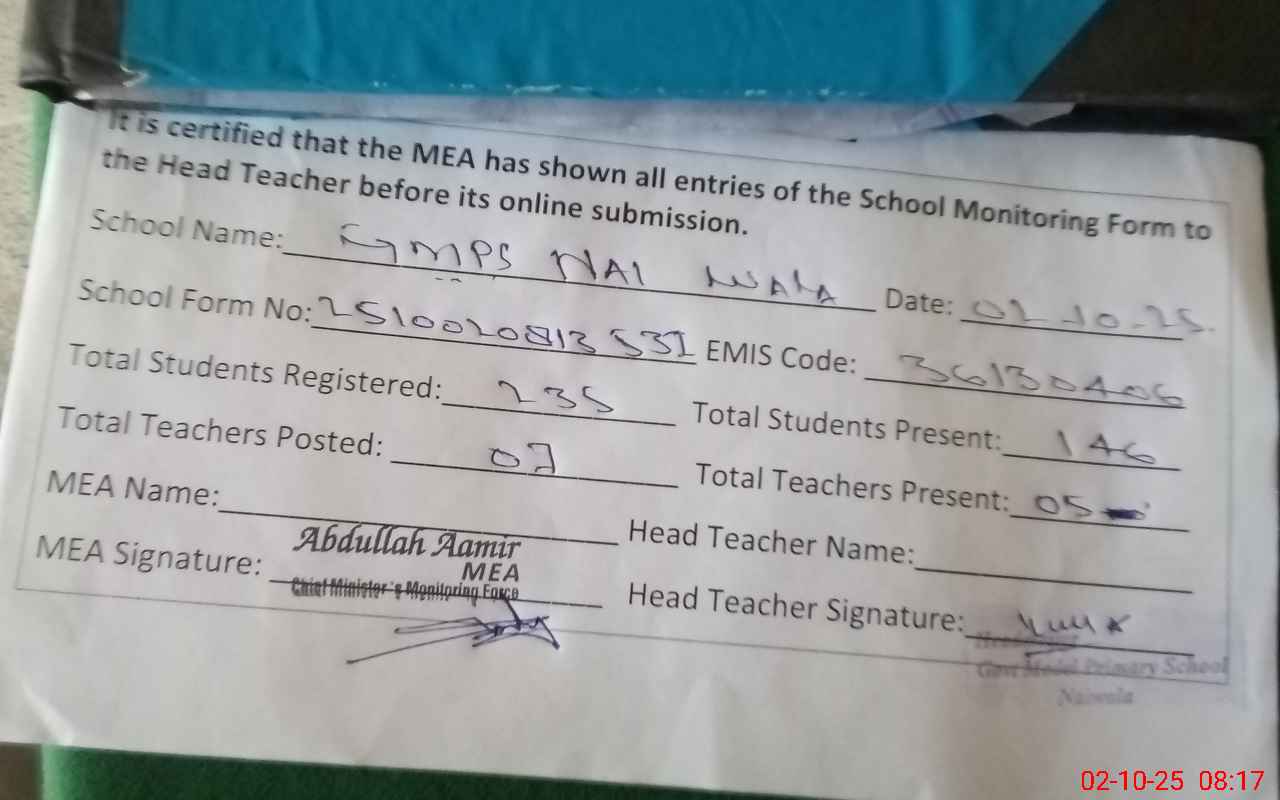 It is certified that the MEA has shown all entries of the School Monitoring Form to
the Head Teacher before its online submission.
School Name: GMPS NAI WALA Date: 02-10-25.
School Form No: 2510020813531 EMIS Code: 36130406
Total Students Registered: 235 Total Students Present: 146
Total Teachers Posted: 07 Total Teachers Present: 05
MEA Name: Head Teacher Name:
Abdullah Aamir
MEA
MEA Signature: Head Teacher Signature:
Chief Minister's Monitoring Force
Govt Model Primary School
Naiwala
02-10-25 08:17